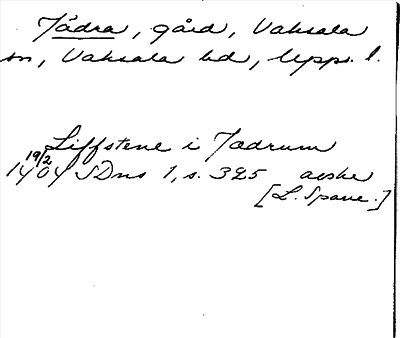 Jädra, gård, Vaksala
sn, Vaksala hd, Upps. l.
Liffstene i Jædrum
19/2 1404 SDns 1, s. 325 avskr
[L. Spaue.]